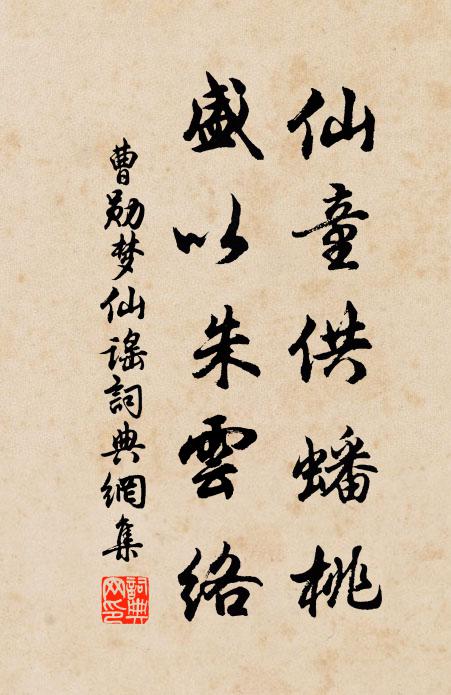 仙童供蟠桃
盛以朱雲絡
曹勛梦仙謠詞典網集
詞典网印